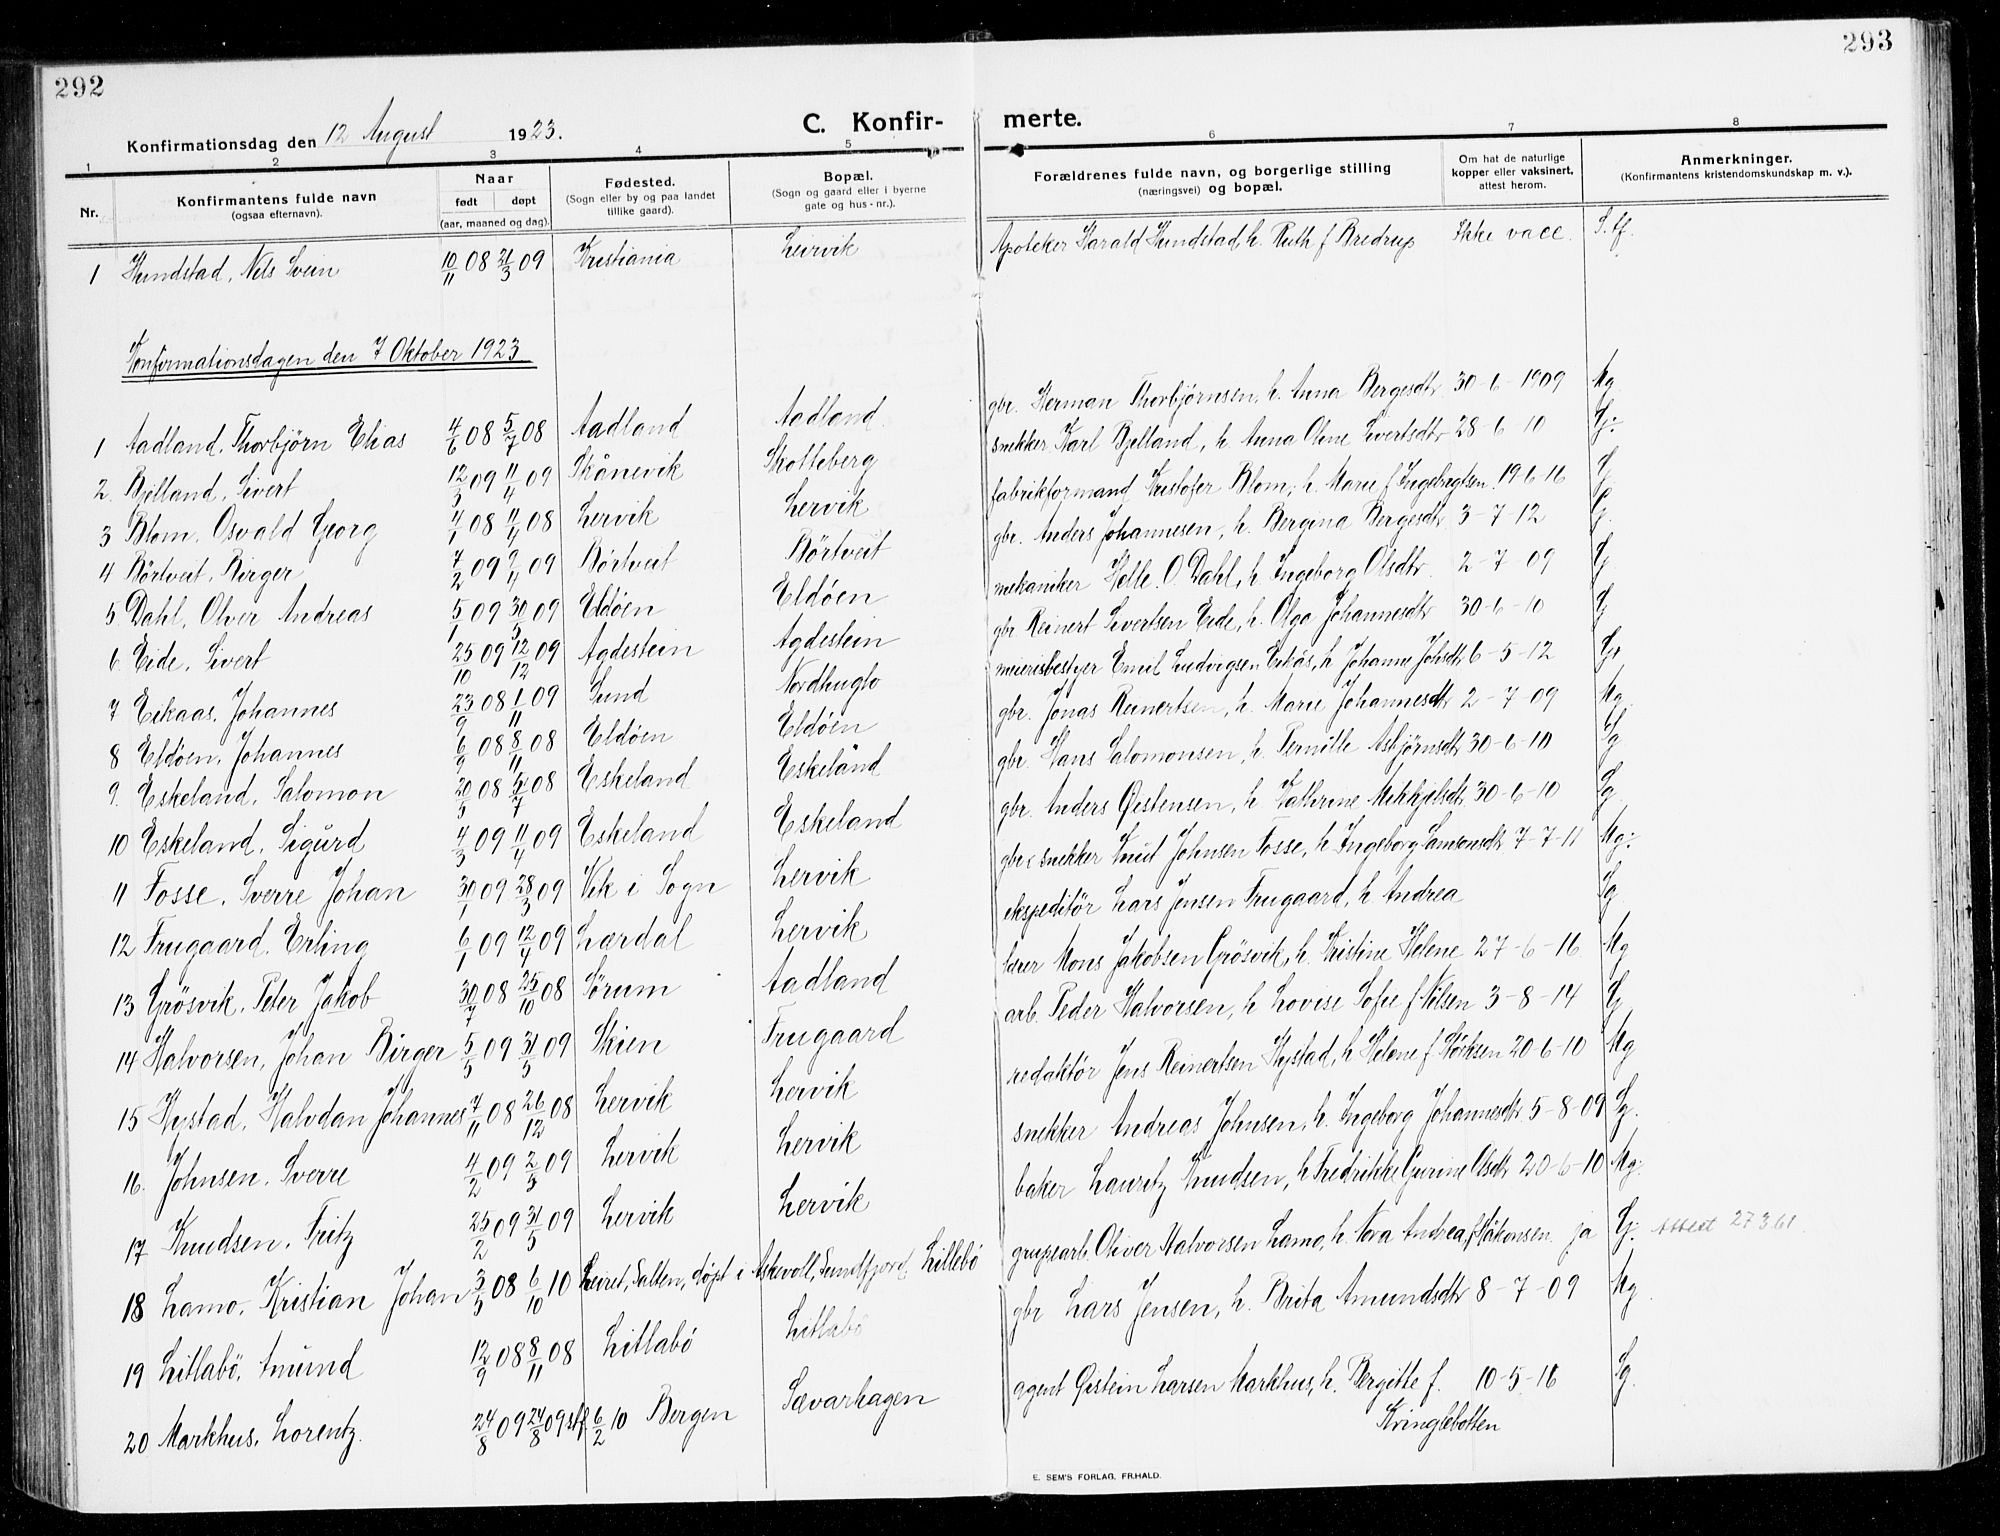 292
293
Konfirmationsdag den 12 August 1923.
C. Konfir- merte.
1 2 3 4 5 6 7 8
Nr.
Konfirmantens fulde navn
(ogsaa efternavn).
Naar
født døpt
(aar, maaned og dag).
Fødested.
(Sogn eller by og paa landet
tillike gaard).
Bopæl.
(Sogn og gaard eller i byerne
gate og hus-nr.).
Forældrenes fulde navn, og borgerlige stilling
(næringsvei) og bopæl.
Om hat de naturlige
kopper eller vaksinert,
attest herom.
Anmerkninger.
(Konfirmantens kristendomskundskap m. v.).
1 Hundstad, Nils Svein 10/11 08 21/3 09 Kristiania Leirvik Apoteker Harald Hundstad, h. Ruth f Bredrup Ikke vacc.
Konfirmationsdagen den 7 Oktober 1923
1 Aadland, Thorbjörn Elias 4/6 08 5/7 08 Aadland Aadland gbr. Herman Thorbjörnsen, h. Anna Bergesdtr 30-6-1909 Mg
2. Bjelland, Sivert 12/3 09 11/4 09 Skånevik Skotteberg snekker Karl Bjelland, h. Anna Oline Sivertsdtr 28-6-10 G.
3 Blom, Osvald Georg 4/1 08 11/4 08 Lervik Lervik fabrikformand Kristofer Blom, h. Marie f Ingebregtsen 19-6-16 G
4 Börtveit, Birger 7/2 09 9/4 09 Börtveit Börtveit gbr. Anders Johannesen, h. Bergina Bergesdtr 3-7-12 G.
5 Dahl, Oliver Andreas 5/1 09 30/5 09 Eldöen Eldöen mekaniker Helle O. Dahl, h. Ingeborg Olsdtr 2-7-09 G
6. Eide, Sivert 25/10 09 12/12 09 Agdestein Agdestein gbr Reinert Sivertsen Eide, h. Olga Johannesdtr 30-6-10 G
7 Eikaas, Johannes 23/9 08 1/11 09 Sund Nordhuglo meieribestyer Emil Ludvigsen Eikås, h Johanne Johsdtr 6-5-12 G
8 Eldöen, Johannes 6/9 08 8/11 08 Eldöen Eldöen gbr. Jonas Reinertsen, h. Marie Johannesdtr 2-7-09 Mg
9. Eskeland, Salomon 20/5 08 5/7 08 Eskeland Eskeland gbr. Hans Salomonsen, h. Pernille Asbjörnsdtr 30-6-10 Sg
10 Eskeland, Sigurd 4/3 09 11/4 09 Eskeland Eskeland gbr. Anders Øistensen, h. Kathrine Mikkjelsdtr 30-6-10 Sg.
11 Fosse, Sverre Johan 30/1 09 28/3 09 Vik i Sogn Lervik gbr & snekker Knut Johnsen Fosse, h Ingeborg Samsonsdtr 7-7-11 Mg.
12 Frugaard, Erling 6/1 09 12/4 09 Lærdal Lervik ekspeditör Lars Jensen Frugaard, h. Andrea Sg.
13 Grösvik, Peter Jakob 30/7 08 25/10 08 Sörum Aadland lærer Mons Jakobsen Grösvik, h. Kristine Helene 27-6-16 Mg
14 Halvorsen, Johan Birger 5/5 09 31/5 09 Skien Frugaard arb. Peder Halvorsen, h Lovise Sofie f Nilsen 3-8-14 G
15 Hystad, Halvdan Johannes 7/11 08 26/12 08 Lervik Lervik redaktör Jens Reinertsen Hystad, h Helene f Störksen 20-6-10 Mg
16. Johnsen, Sverre 4/2 09 2/5 09 Lervik Lervik snekker Andreas Johnsen, h. Ingeborg Johannesdtr 5-8-09 Sg.
17 Knudsen, Fritz 25/2 09 31/5 09 Lervik Lervik baker Lauritz Knudsen, h Fredrikke Gurine Olsdtr 20-6-10 Mg.
18 Lamo, Kristian Johan 3/5 08 6/10 10 Leiret, Salten, döpt i Askevoll, Sundfjord Lillebö grupearb. Oliver Halvorsen Lamo, h. Nora Andrea f Håkonsen ja G. Attest 27 3 61
19 Litlabö, Amund 12/9 08 8/11 08 Litlabö Litlabö gbr Lars Jensen, h. Brita Amundsdtr 8-7-09 Mg
20 Markhus, Lorentz. 24/8 09 24/8 09 stf 6/2 10 Bergen Sævarhagen agent Øistein Larsen Markhus, h. Bergitte f. 10-5-16 Sg.
Kringlebotten
E. SEM'S FORLAG, FR.HALD.